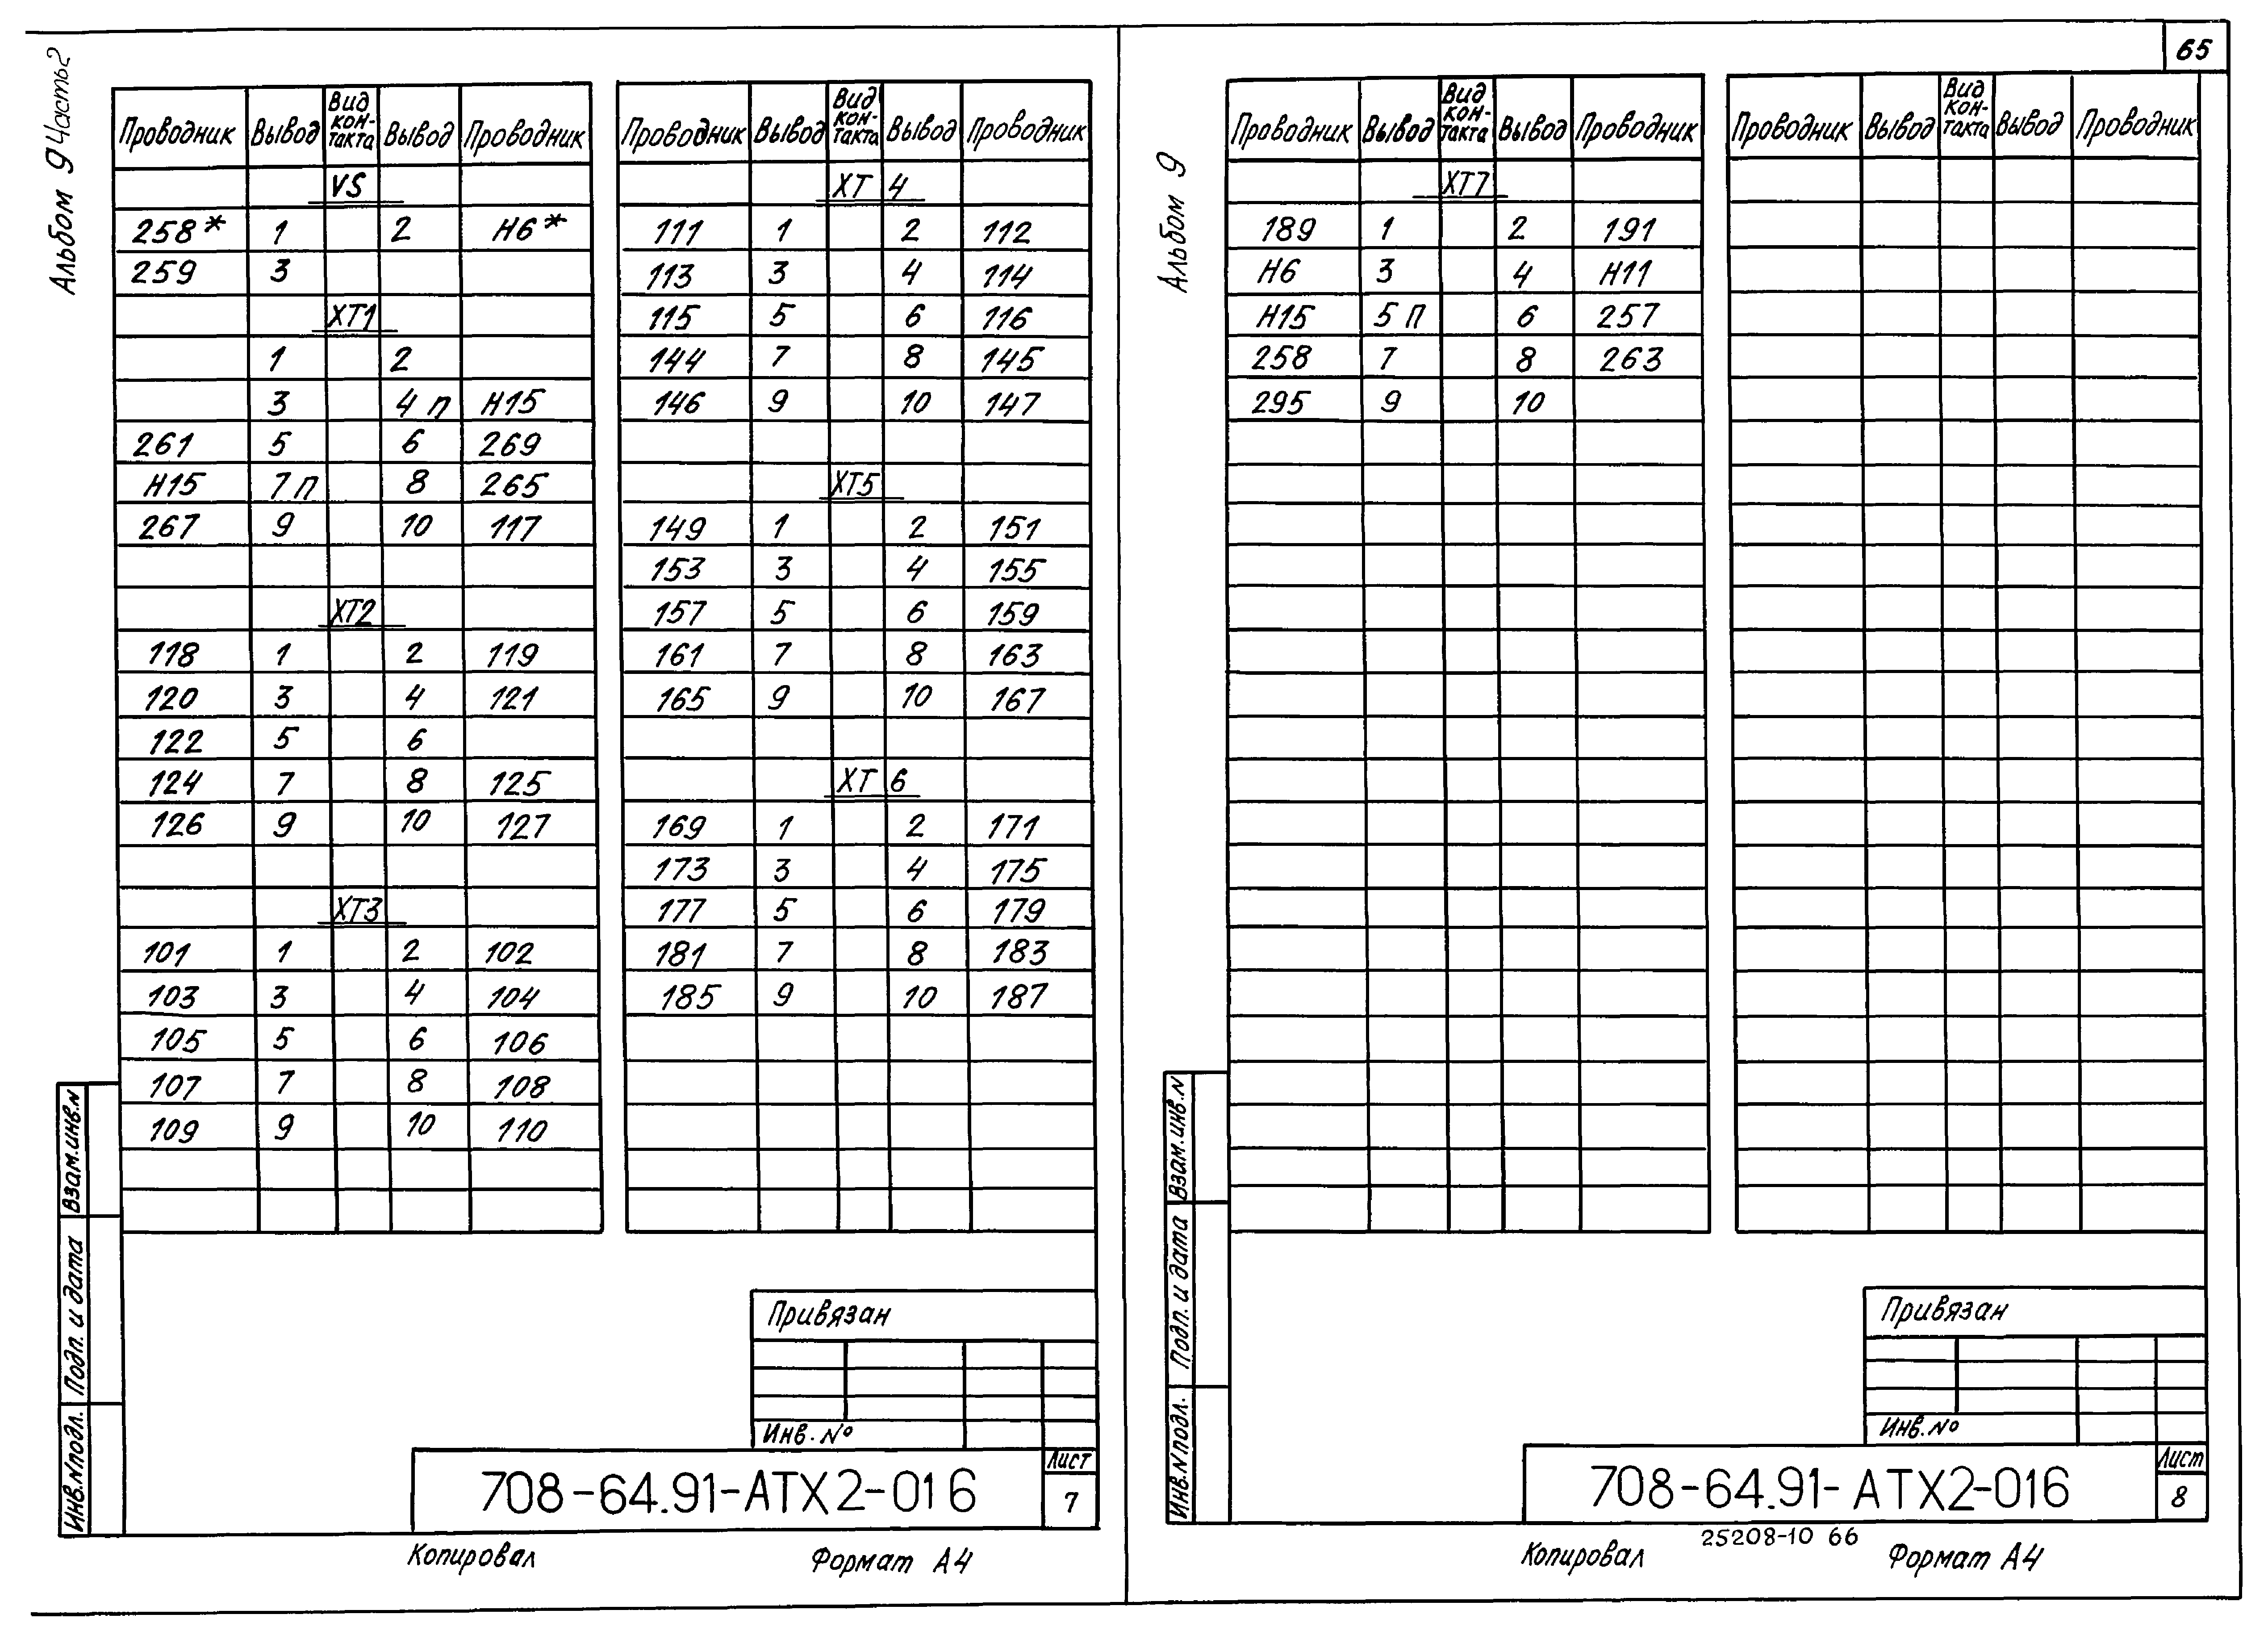 Альбом 9 Часть 2
Проводник Вывод Вид контакта Вывод Проводник
VS
258* 1 2 Н6*
259 3
ХТ1
1 2
3 4 П Н15
261 5 6 269
Н15 7 П 8 265
267 9 10 117
ХТ2
118 1 2 119
120 3 4 121
122 5 6
124 7 8 125
126 9 10 127
ХТ3
101 1 2 102
103 3 4 104
105 5 6 106
107 7 8 108
109 9 10 110
Проводник Вывод Вид контакта Вывод Проводник
ХТ 4
111 1 2 112
113 3 4 114
115 5 6 116
144 7 8 145
146 9 10 147
ХТ5
149 1 2 151
153 3 4 155
157 5 6 159
161 7 8 163
165 9 10 167
ХТ 6
169 1 2 171
173 3 4 175
177 5 6 179
181 7 8 183
185 9 10 187
Взам.инв.N
Подп. и дата
Инв.Nподл.
Привязан
Инв. №
708-64.91-АТХ2-016
Лист
7
Копировал Формат А4
65
Альбом 9
Проводник Вывод Вид кон-такта Вывод Проводник
ХТ7
189 1 2 191
Н6 3 4 Н11
Н15 5 П 6 257
258 7 8 263
295 9 10
Проводник Вывод Вид кон-такта Вывод Проводник
Взам.инв.N
Подп. и дата
Инв.Nподл.
Привязан
Инв. №
708-64.91-АТХ2-016
Лист
8
25208-10 66
Копировал Формат А4